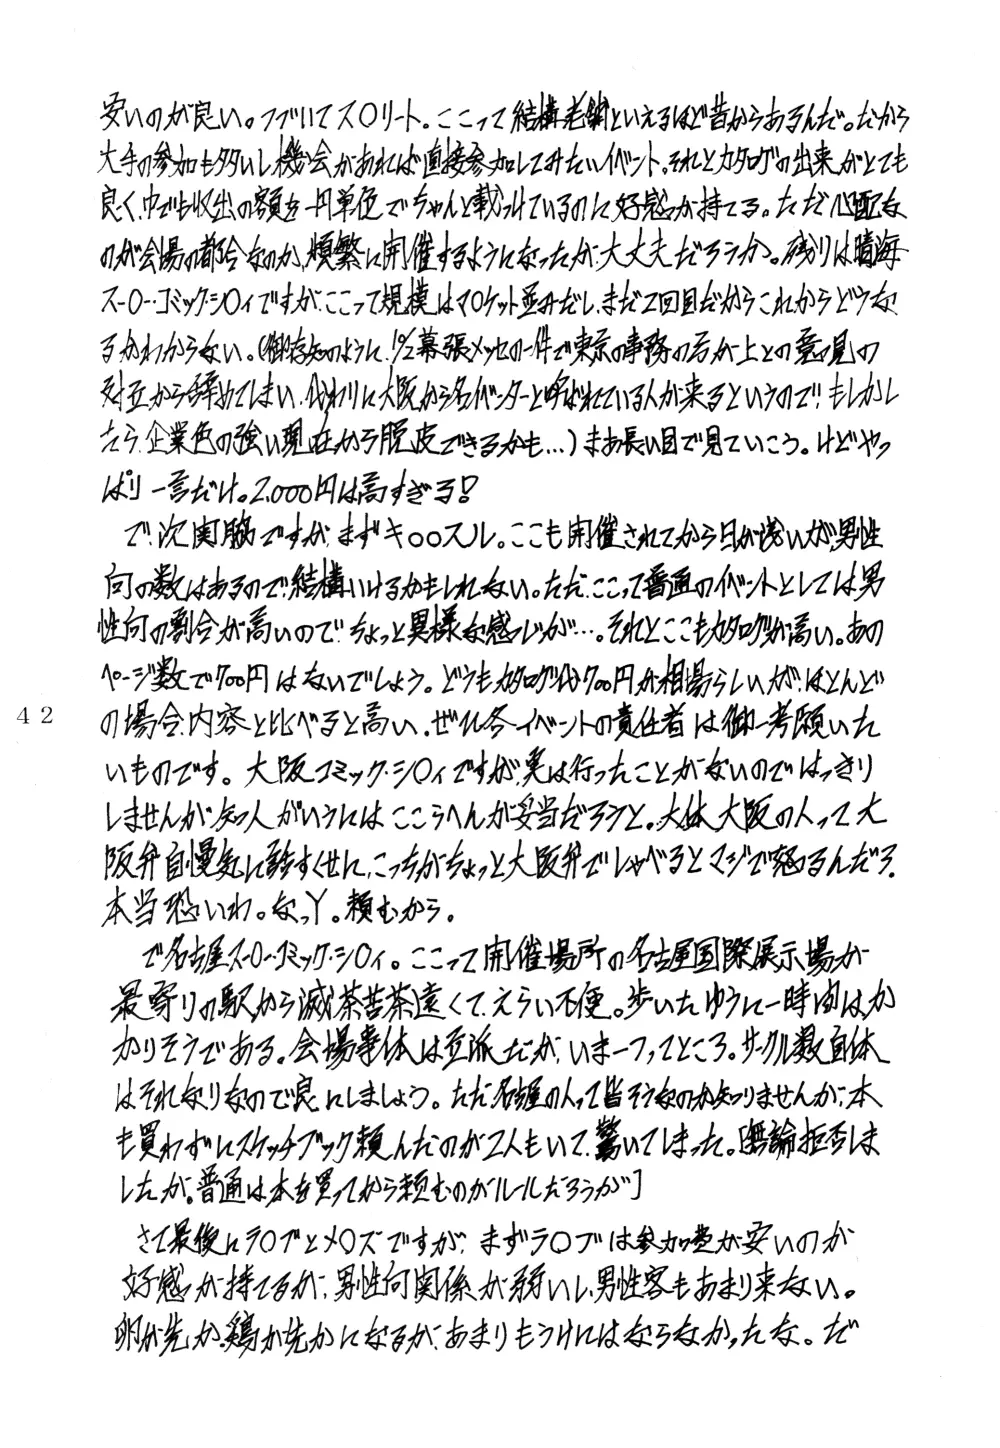 安いのが良い。つづいてス〇リート。ここって結構老舗といえるほど昔からあるんだ。だから
大手の参加も多いし機会があれば直接参加してみたいイベント。それとカタログの出来がとても
良く、中でも収出の額を一円単色でちゃんと載っけているのに好感が持てる。ただ心配な
のが会場の都合なのか、頻繁に開催するようになったが、大丈夫だろうか。残りは晴海
スー〇ー・コミック・シ〇ィですが、ここって規模はマ〇ケット並みだし、まだ2回目だからこれからどうな
るかわからない。(御存知のように、幕張メッセの一件で東京の事務の方が上との意見の
対立から辞めてしまい、代わりに大阪から名イベンターと呼ばれている人が来るというので!もしかし
たら、企業色の強い現在から脱皮できるかも…)まあ長い目で見ていこう。けどやっ
ぱり一言だけ。2,000円は高すぎる!
で、次関脇ですが、まずキ〇〇スル。ここも開催されてから日が浅いが、男性
向の数はあるので、結構いけるかもしれない。ただ、ここって普通のイベントとしては男
性向の割合が高いので、ちょっと異様な感じが…。それとここもカタログが高い。あの
ページ数で700円はないでしょう。どうもカタログ代700円が相場らしいが、ほとんど
の場合、内容と比べると高い。ぜひ各イベントの責任者は御一考願いた
いものです。大阪コミック・シ〇ィですが、実は行ったことがないのではっきり
しませんが、知人がいうにはここらへんが妥当だろうと。大体大阪の人って大
阪弁自慢気に話すくせに、こっちがちょっと大阪弁でしゃべるとマジで怒るんだろ。
本当恐いわ。なっY。頼むから。
で名古屋スー〇ー・コミック・シ〇ィ。ここって開催場所の名古屋国際展示場が
最寄りの駅から滅茶苦茶遠くて、えらい不便。歩いたゆうに一時間はか
かりそうである。会場事体は立派だが、いま一つってところ。サークル数自体
はそれなりなので良しにしましょう。ただ名古屋の人って皆そうなのか知りませんが、本
も買わずにスケッチブック頼んだのが2人もいて、驚いてしまった。[無論拒否しま
したが。普通は本を買ってから頼むのがルールだろうが]
さて最後にラ〇ブとメ〇ズですが、まずラ〇ブは参加費が安いのが
好感が持てるが、男性向関係が弱いし、男性客もあまり来ない。
卵が先か、鶏が先かになるが、あまりもうけにはならなかったな。だ
42